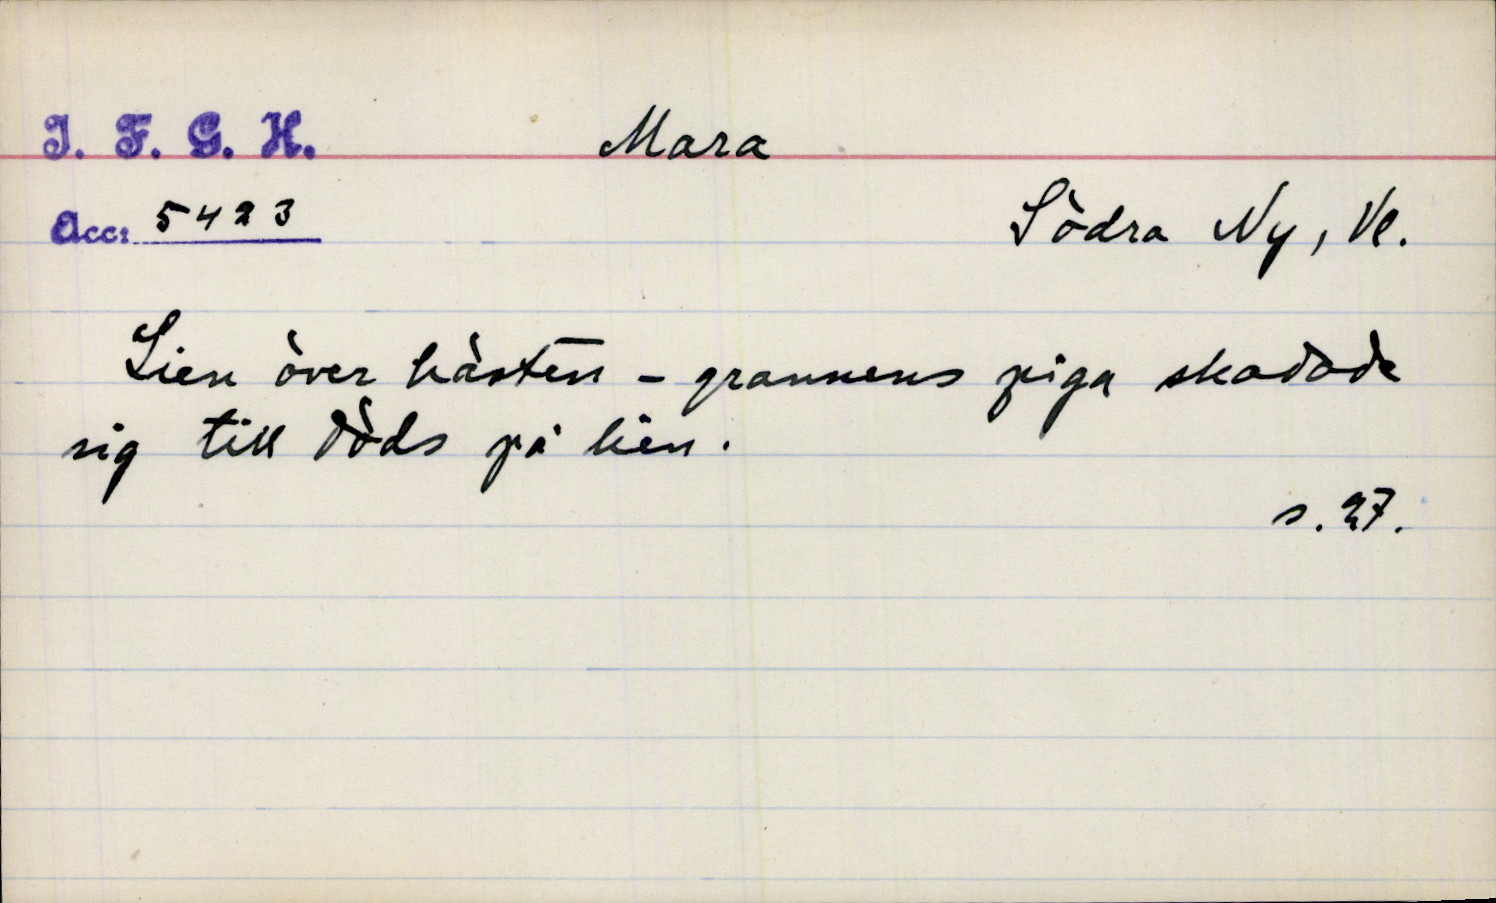 I. F. G. H.
Mara
Acc: 5423
Södra Ny, Vl.
Lien över hästen - grannens piga skadade
sig till döds på lien.
s. 27.